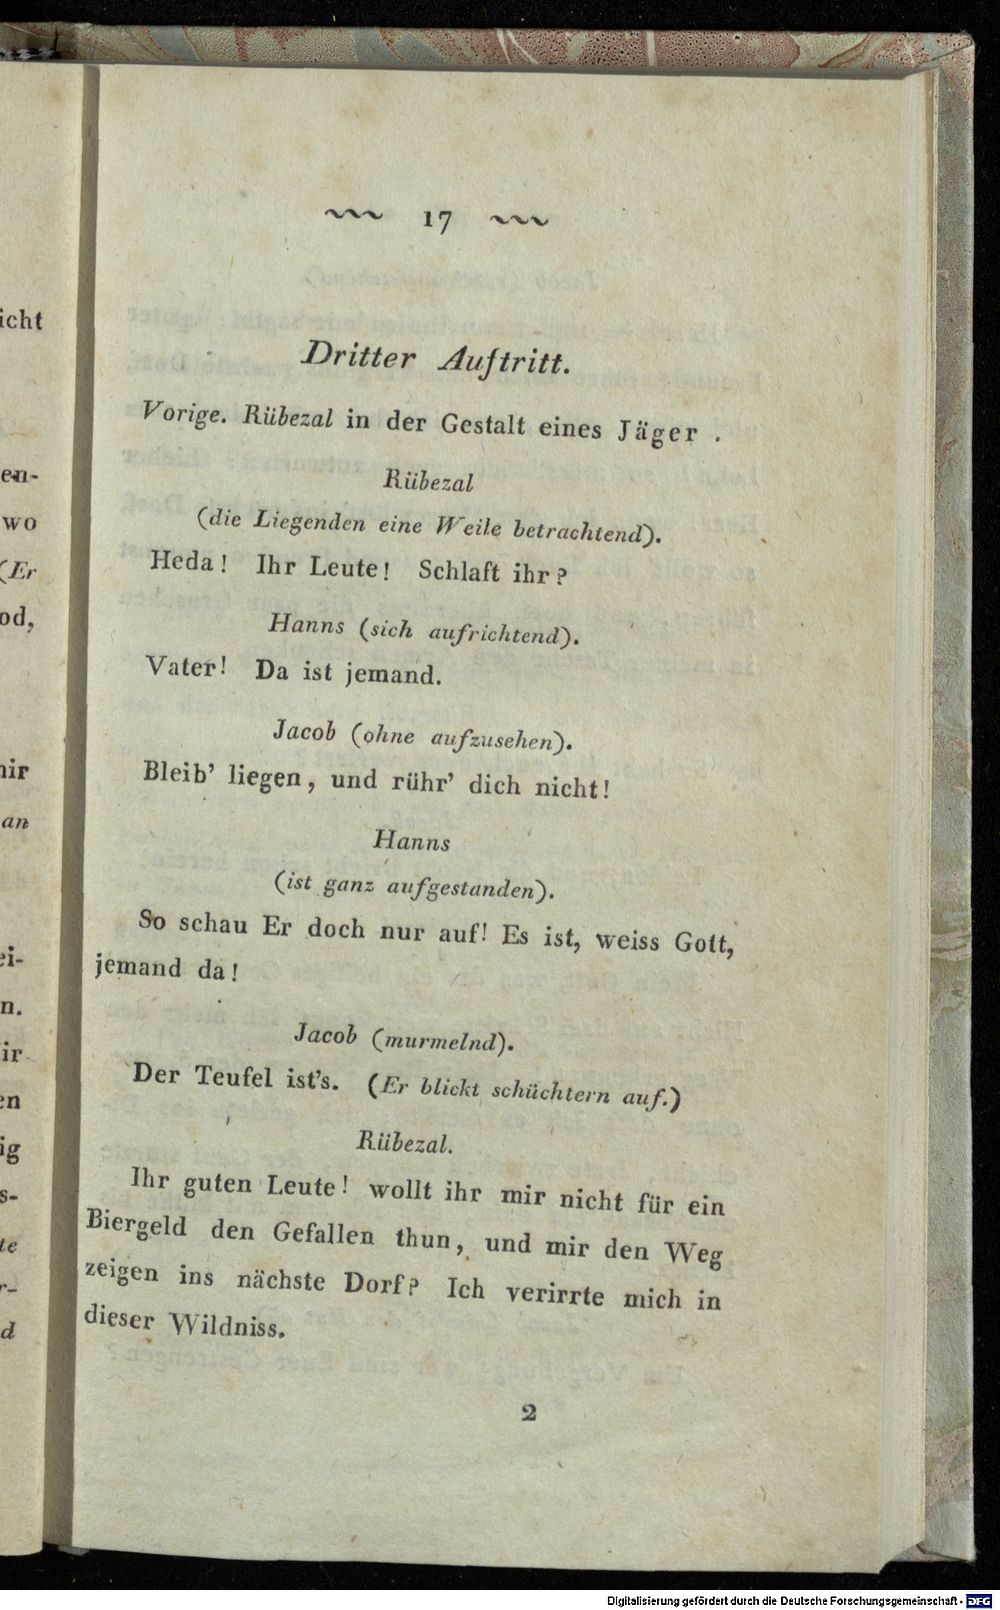 icht
en-
wo
(Er
od,
nir
an
ei-
n.
ir
en
ig
s-
te
r-
d
17
Dritter Auftritt.
Vorige. Rübezal in der Gestalt eines Jäger .
Rübezal
(die Liegenden eine Weile betrachtend).
Heda! Ihr Leute! Schlaft ihr?
Hanns (sich aufrichtend).
Vater! Da ist jemand.
Jacob (ohne aufzusehen).
Bleib' liegen, und rühr' dich nicht!
Hanns
(ist ganz aufgestanden).
So schau Er doch nur auf! Es ist, weiss Gott,
jemand da!
Jacob (murmelnd).
Der Teufel ist's. (Er blickt schüchtern auf.)
Rübezal.
Ihr guten Leute! wollt ihr mir nicht für ein
Biergeld den Gefallen thun, und mir den Weg
zeigen ins nächste Dorf? Ich verirrte mich in
dieser Wildniss.
2
Digitalisierung gefördert durch die Deutsche Forschungsgemeinschaft - DFG